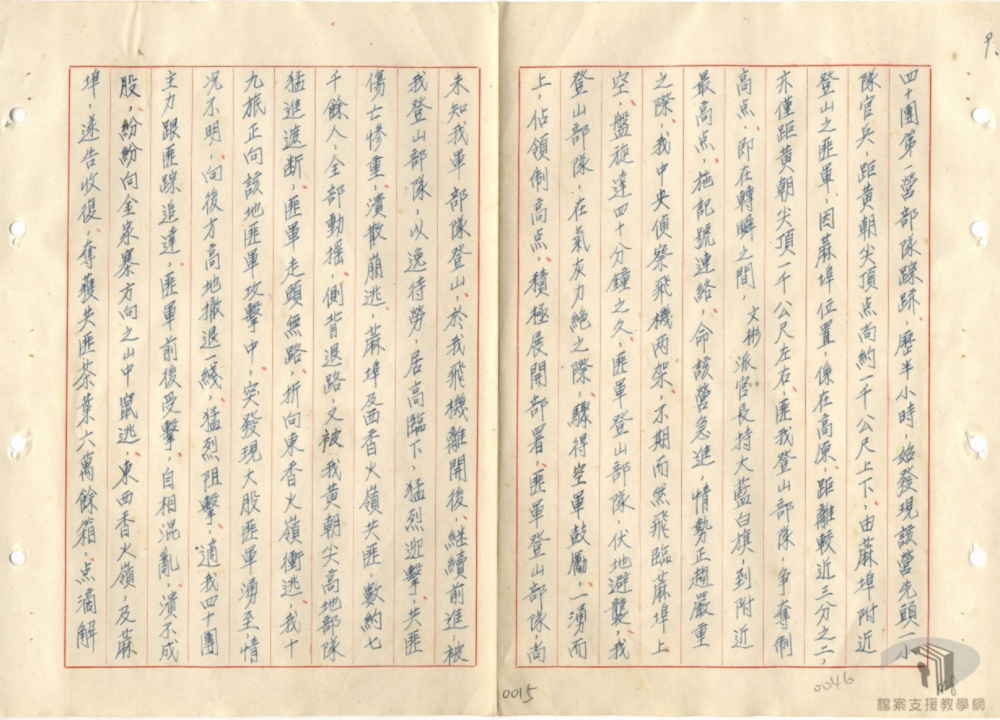 9.
四十團第一營部隊踪跡，歷半小時，始發現該營先頭一小
隊官兵，距黃朝尖頂点尚約一千公尺上下，由蔴埠附近
登山之匪軍，因蔴埠位置，像在高原，距離較近三分之二，
亦僅距黃朝尖頂一千公尺左右，匪我登山部隊，爭奪制
高点，即在轉瞬之間，文彬派官長持大藍白旗，到附近
最高点，施記號連絡，命該營急進，情勢正趨嚴重
之際，我中央偵察飛機两架，不期而然飛臨蔴埠上
空，盤旋達四十分鐘之久，匪軍登山部隊，伏地避襲，我
登山部隊，在氣灰力絶之際，驟得空軍鼓勵，一湧而
上，佔領制高点，積極展開部署，匪軍登山部隊，尚
未知我軍部隊登山，於我飛機離開後，継續前進，被
我登山部隊，以逸待勞，居高臨下，猛烈迎擊，共匪
傷亡慘重，潰散崩逃，蔴埠及西香火嶺共匪，數約七
千餘人，全部動搖，側背退路，又被我黃朝尖高地部隊
猛進遮断，匪軍走頭無路，折向東香火嶺衝逃，我十
九旅正向該地匪軍攻擊中，突發現大股匪軍湧至，情
况不明，向後方高地撤退一綫，猛烈阻擊，適我四十團
主力跟匪踪追達，匪軍前後受擊，自相混亂，潰不成
股，紛紛向金家寨方向之山中竄逃，東西香火嶺，及蔴
埠，遂告收復，奪獲共匪茶葉六萬餘箱，点滴解
0015
0046
檔案支援教學網